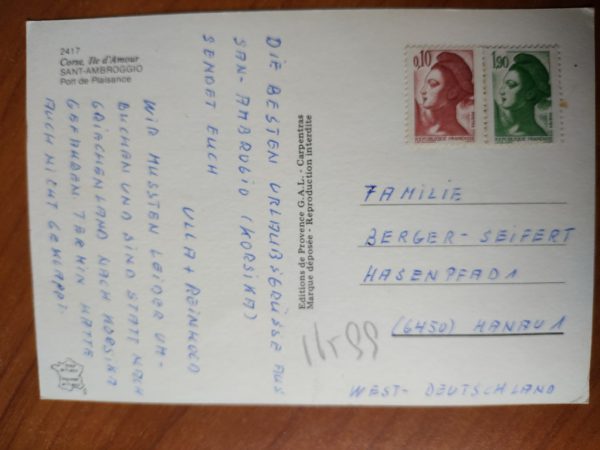 2417
Corse, Ile d'Amour
SANT-AMBROGGIO
Port de Plaisance
DIE BESTEN URLAUBSGRÜSSE AUS
SAN-AMBROGIO (KORSIKA)
SENDET EUCH
ULLA + REINHOLD
WIR MUSSTEN LEIDER UM-
BUCHEN UND SIND STATT NACH
GRIECHENLAND NACH KORSIKA
GEFAHREN. TERMIN HATTE
AUCH NICHT GEKLAPPT.
Editions de Provence G.A.L. - Carpentras
Marque déposée - Reproduction interdite
0,10
REPUBLIQUE FRANÇAISE
1,90
REPUBLIQUE FRANÇAISE
FAMILIE
BERGER-SEIFERT
HASENPFAD 1
(6450) HANAU 1
WEST-DEUTSCHLAND